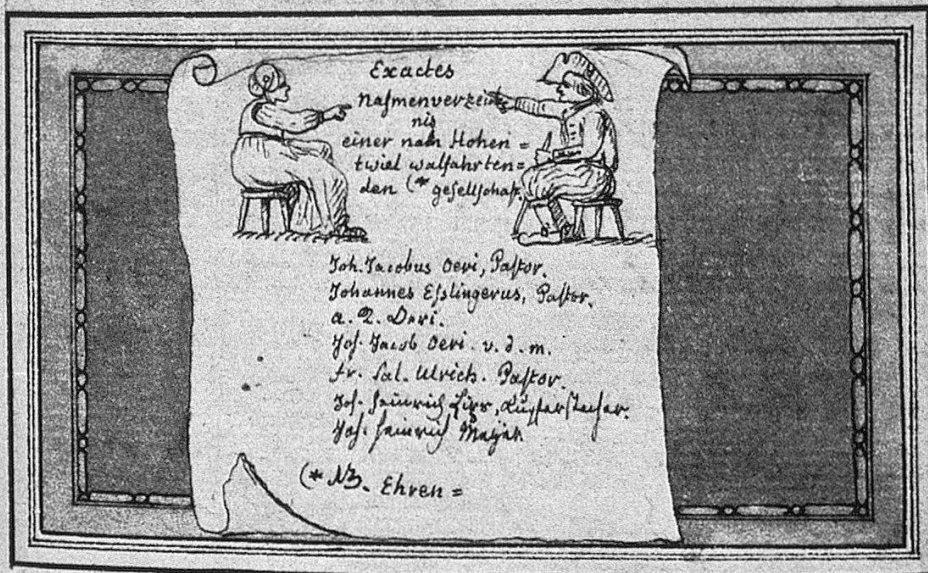 Exactes
Nahmenverzeich
nis
einer nach Hohen=
twiel walfahrten=
den (* gesellschaft.
Joh. Jacobus Oeri, Pastor.
Johannes Esslingerus, Pastor.
a. Oeri.
Joh. Jacob Oeri. v. d. m.
Sal. Ulrich. Pastor.
Joh. Heinrich Lips, Kupferstecher.
Joh. Heinrich Meyer
(* NB. Ehren=